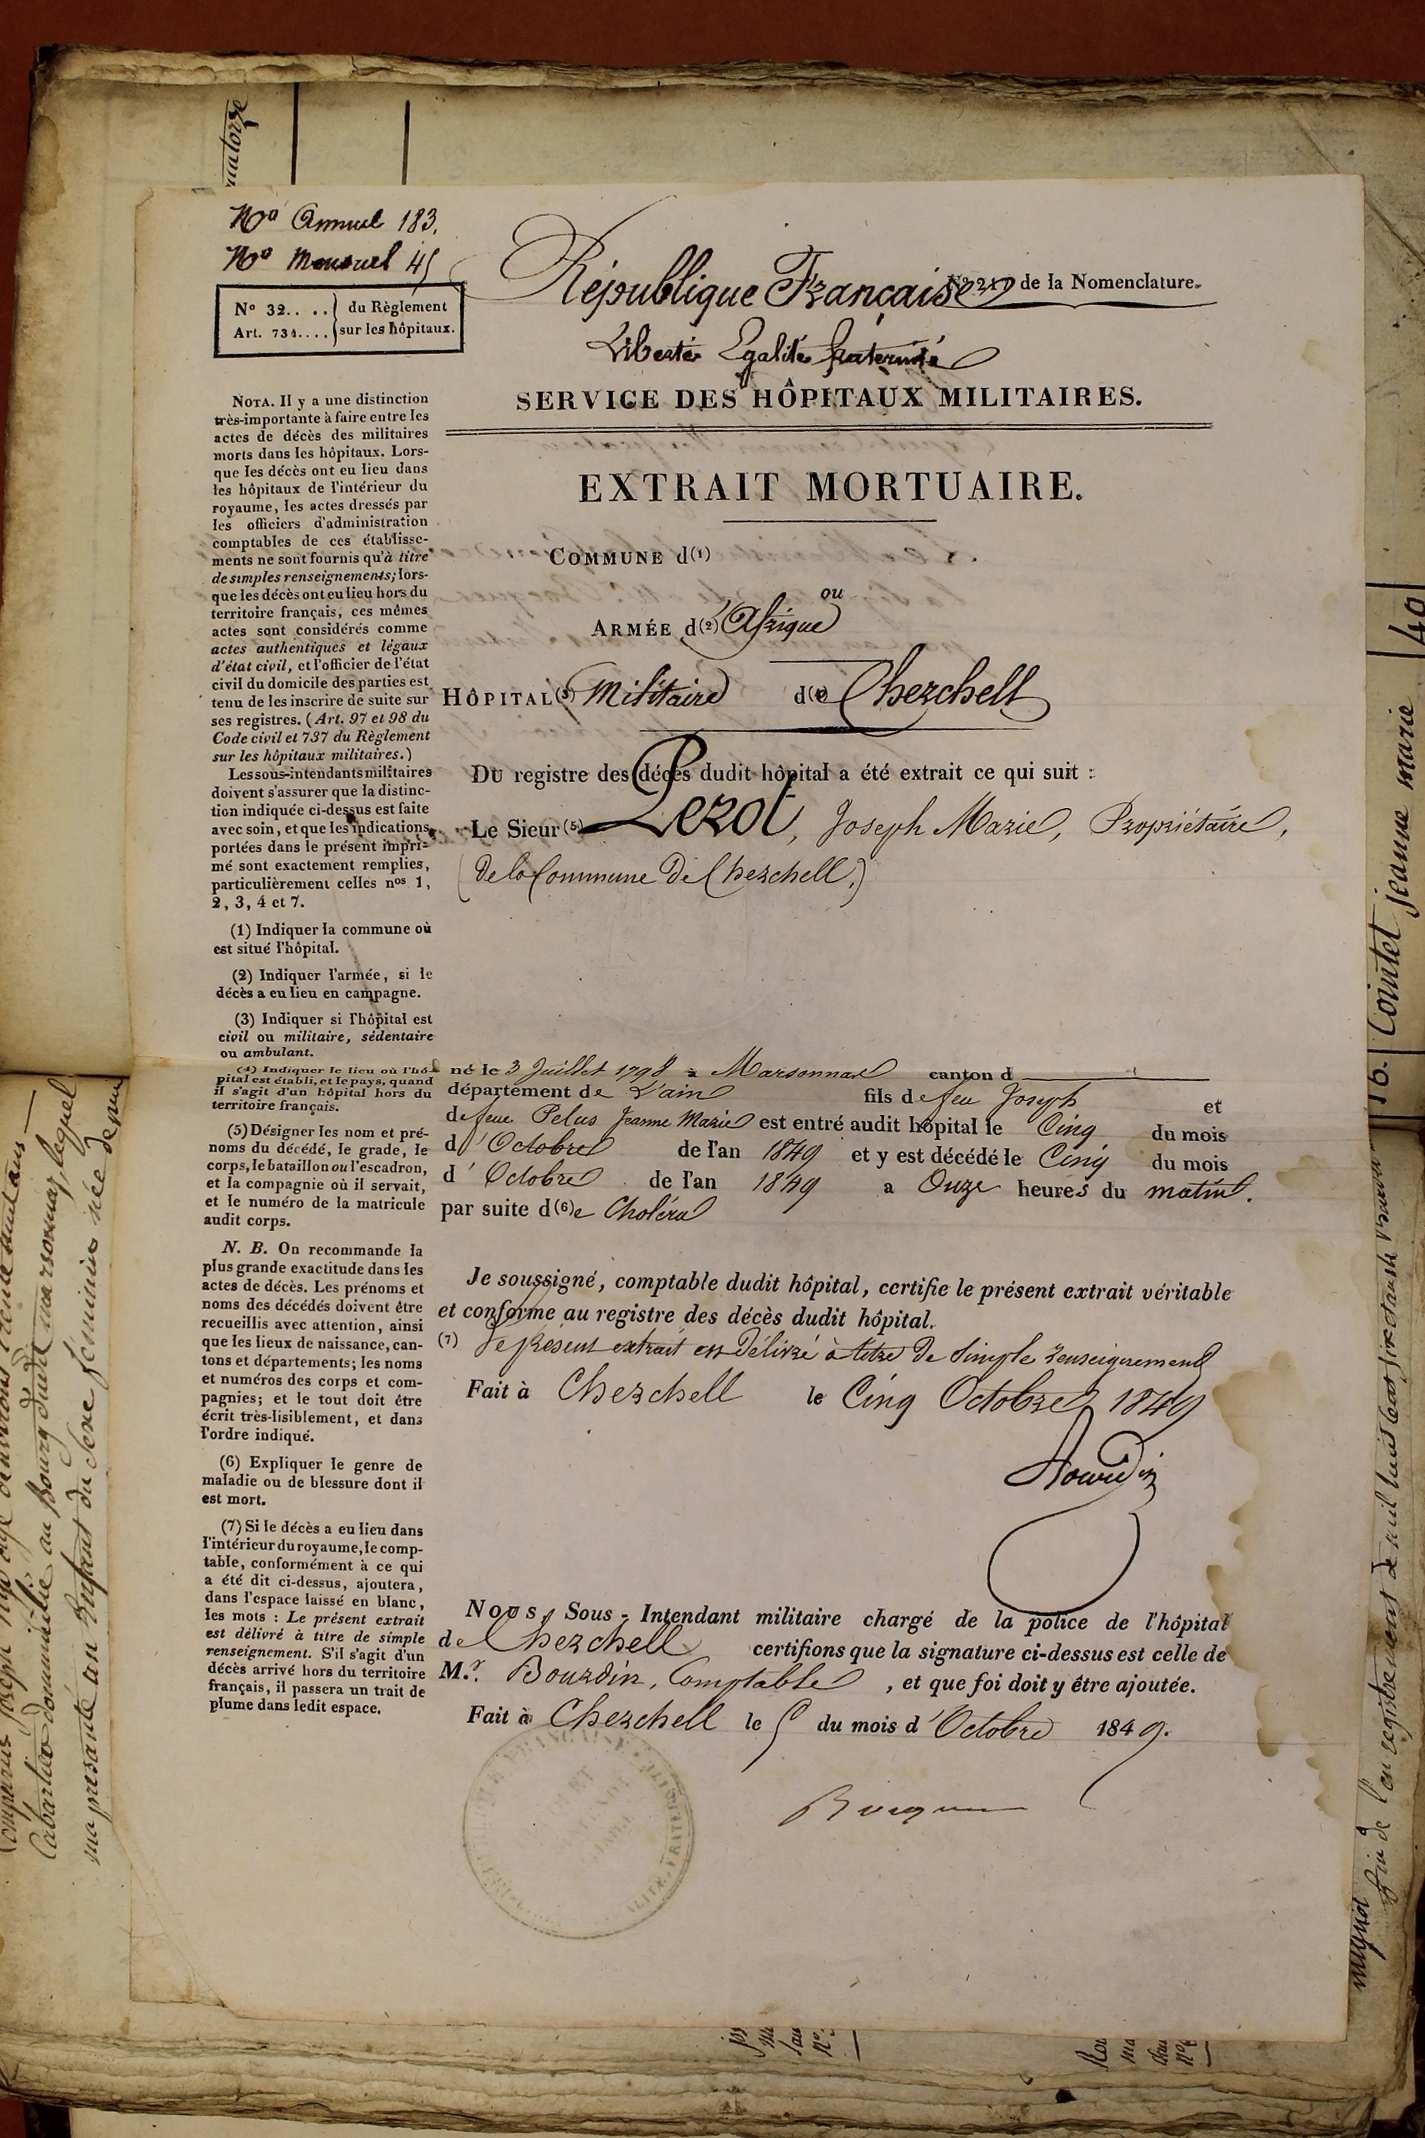 No Annuel 183.
No Mensuel 45
No 32.... du Règlement
Art. 734.... sur les hôpitaux.
République Française
No 217 de la Nomenclature.
Liberté Egalité fraternité
SERVICE DES HÔPITAUX MILITAIRES.
EXTRAIT MORTUAIRE.
COMMUNE d(1)
ou
ARMÉE d(2)'Afrique
HÔPITAL(3) Militaire d(4)e Cherchell
DU registre des décès dudit hôpital a été extrait ce qui suit :
Le Sieur(5) Perot, Joseph Marie, Propriétaire,
(de la Commune De Cherchell.)
né le 3 Juillet 1798 à Marsonnas canton d
département de L'ain fils de feu Joseph et
de feue Pelus Jeanne Marie est entré audit hôpital le Cinq du mois
d'Octobre de l'an 1849 et y est décédé le Cinq du mois
d'Octobre de l'an 1849 a Onze heures du matin.
par suite d(6)e Choléra
Je soussigné, comptable dudit hôpital, certifie le présent extrait véritable
et conforme au registre des décès dudit hôpital.
(7) Le présent extrait est Délivré à titre De Simple renseignement
Fait à Cherchell le Cinq Octobre 1849
Bourdin
NOUS, Sous-Intendant militaire chargé de la police de l'hôpital
de Cherchell certifions que la signature ci-dessus est celle de
M.r Bourdin, Comptable, et que foi doit y être ajoutée.
Fait à Cherchell le 5 du mois d'Octobre 1849.
NOTA. Il y a une distinction
très-importante à faire entre les
actes de décès des militaires
morts dans les hôpitaux. Lors-
que les décès ont eu lieu dans
les hôpitaux de l'intérieur du
royaume, les actes dressés par
les officiers d'administration
comptables de ces établisse-
ments ne sont fournis qu'à titre
de simples renseignements; lors-
que les décès ont eu lieu hors du
territoire français, ces mêmes
actes sont considérés comme
actes authentiques et légaux
d'état civil, et l'officier de l'état
civil du domicile des parties est
tenu de les inscrire de suite sur
ses registres. (Art. 97 et 98 du
Code civil et 737 du Règlement
sur les hôpitaux militaires.)
Les sous-intendants militaires
doivent s'assurer que la distinc-
tion indiquée ci-dessus est faite
avec soin, et que les indications
portées dans le présent impri-
mé sont exactement remplies,
particulièrement celles nos 1,
2, 3, 4 et 7.
(1) Indiquer la commune où
est situé l'hôpital.
(2) Indiquer l'armée, si le
décès a eu lieu en campagne.
(3) Indiquer si l'hôpital est
civil ou militaire, sédentaire
ou ambulant.
(4) Indiquer le lieu où l'hô-
pital est établi, et le pays, quand
il s'agit d'un hôpital hors du
territoire français.
(5) Désigner les nom et pré-
noms du décédé, le grade, le
corps, le bataillon ou l'escadron,
et la compagnie où il servait,
et le numéro de la matricule
audit corps.
N. B. On recommande la
plus grande exactitude dans les
actes de décès. Les prénoms et
noms des décédés doivent être
recueillis avec attention, ainsi
que les lieux de naissance, can-
tons et départements; les noms
et numéros des corps et com-
pagnies; et le tout doit être
écrit très-lisiblement, et dans
l'ordre indiqué.
(6) Expliquer le genre de
maladie ou de blessure dont il
est mort.
(7) Si le décès a eu lieu dans
l'intérieur du royaume, le comp-
table, conformément à ce qui
a été dit ci-dessus, ajoutera,
dans l'espace laissé en blanc,
les mots : Le présent extrait
est délivré à titre de simple
renseignement. S'il s'agit d'un
décès arrivé hors du territoire
français, il passera un trait de
plume dans ledit espace.
16. Cointet jeanne marie 40
Cabartier domicilié au Bourg dudit marsonnaz lequel
ma présanté un Enfant du sexe féminin née